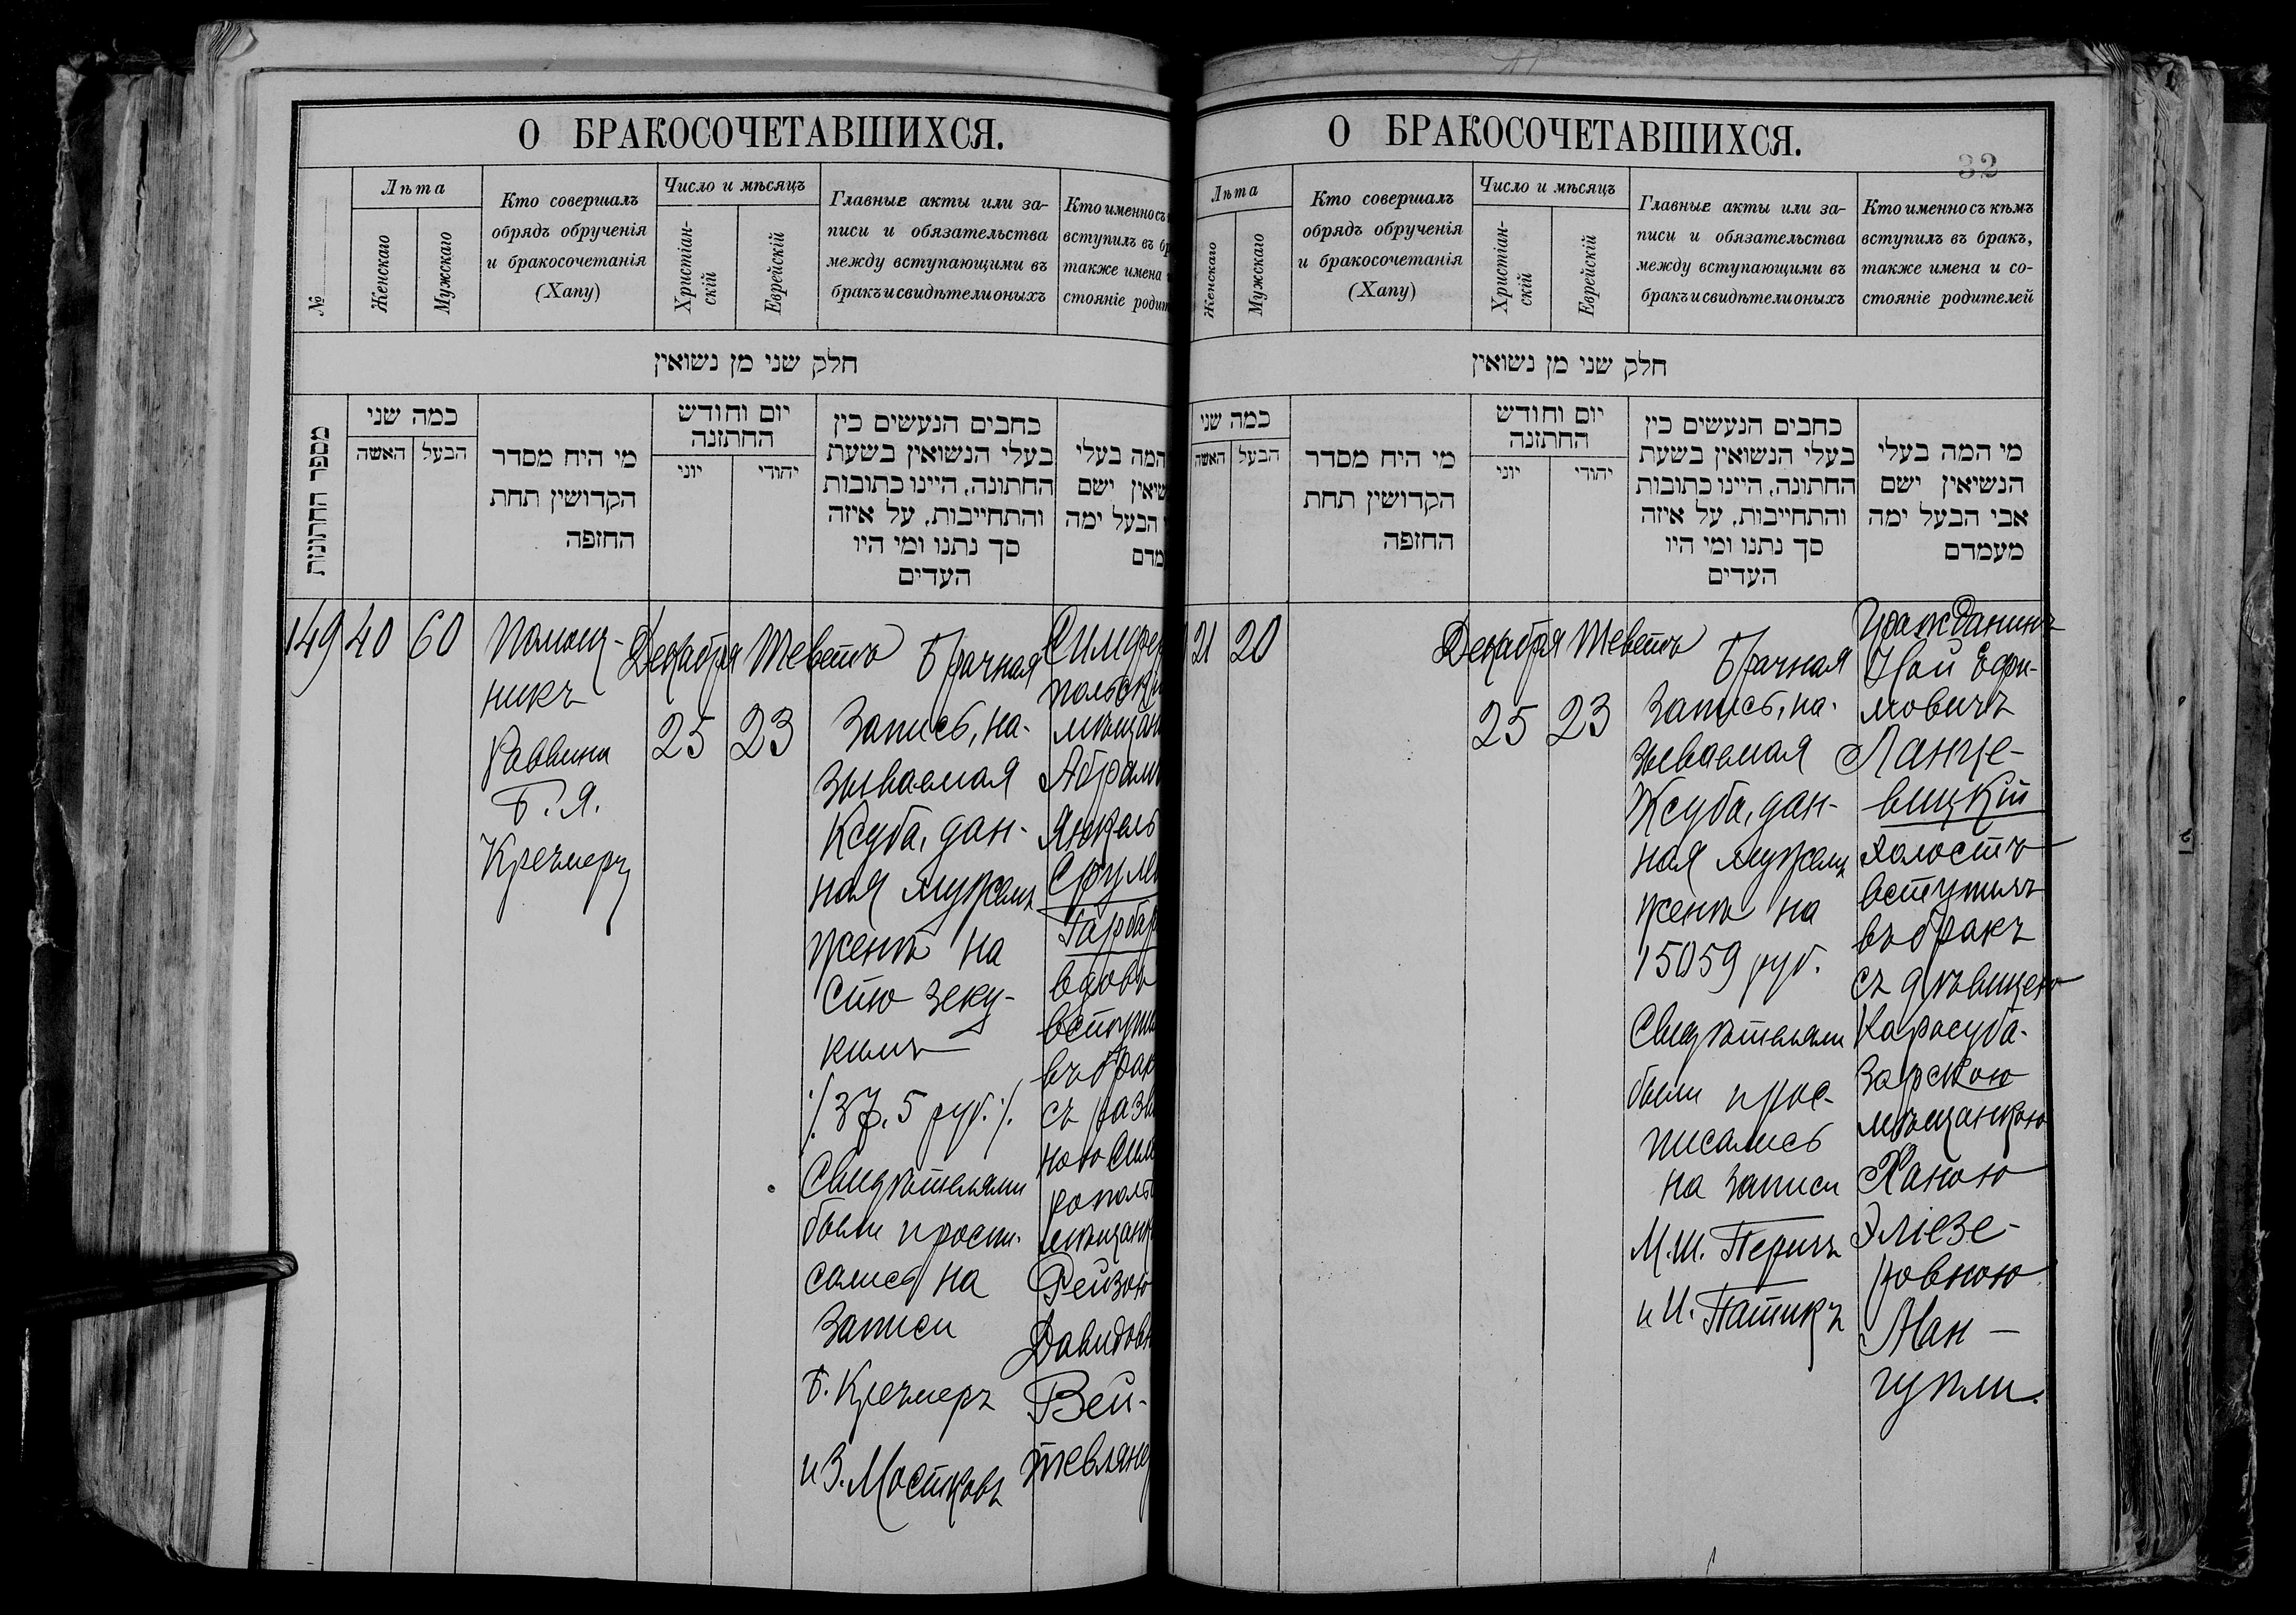 О БРАКОСОЧЕТАВШИХСЯ.
№
Лѣта
Женскаго
Мужскаго
Кто совершалъ
обрядъ обрученія
и бракосочетанія
(Хапу)
Число и мѣсяцъ
Христіан-
скій
Еврейскій
Главные акты или за-
писи и обязательства
между вступающими въ
бракъ и свидѣтели оныхъ
Кто именно съ
вступилъ въ бр
также имена
стояніе родит
חלק שני מן נשואין
מספר החתונות
כמה שני
האשה
הבעל
מי היח מסדר
הקדושין תחת
החופה
יום וחודש
החתונה
יוני
יהודי
כתבים הנעשים בין
בעלי הנשואין בשעת
החתונה, היינו כתובות
והתחייבות, על איזה
סך נתנו ומי היו
העדים
המה בעלי
שיאין ישם
הבעל ימה
מדם
149
40
60
Помощ-
никъ
Раввина
Б. Я.
Кречмеръ
Декабря
25
Теветъ
23
Брачная
Запись, на-
зываемая
Ксуба, дан-
ная мужемъ
женѣ на
сто зеку-
кимъ
/. 37,5 руб. /.
Свидѣтелями
были распи-
сались на
записи
Б. Кречмеръ
и З. Мостковъ
Симфер
польскі
мѣщан
Абрам
Янкель
Сруле
Гарбар
вдовъ
вступи
въ брак
съ разв
ною Сим
ропол
мѣщанк
Рейзою
Давидовн
Вей-
О БРАКОСОЧЕТАВШИХСЯ.
32
Лѣта
Женскаго
Мужскаго
Кто совершалъ
обрядъ обрученія
и бракосочетанія
(Хапу)
Число и мѣсяцъ
Христіан-
скій
Еврейскій
Главные акты или за-
писи и обязательства
между вступающими въ
бракъ и свидѣтели оныхъ
Кто именно съ кѣмъ
вступилъ въ бракъ,
также имена и со-
стояніе родителей
חלק שני מן נשואין
כמה שני
האשה
הבעל
מי היח מסדר
הקדושין תחת
החופה
יום וחודש
החתונה
יוני
יהודי
כתבים הנעשים בין
בעלי הנשואין בשעת
החתונה, היינו כתובות
והתחייבות, על איזה
סך נתנו ומי היו
העדים
מי המה בעלי
הנשיאין ישם
אבי הבעל ימה
מעמדם
21
20
Декабря
25
Теветъ
23
Брачная
Запись, на-
зываемая
Ксуба, дан-
ная мужемъ
женѣ на
15059 руб.
Свидѣтелями
были и рос-
писались
на записи
М. Ш. Перичъ
и И. Патикъ
Гражданинъ
Ной Ефи-
мовичъ
Ланце-
вицкій
холостъ
вступилъ
въ бракъ
съ дѣвицею
Карасуба-
зарскою
мѣщанкою
Ханою
Эліезе-
ровною
Ман-
гупли.